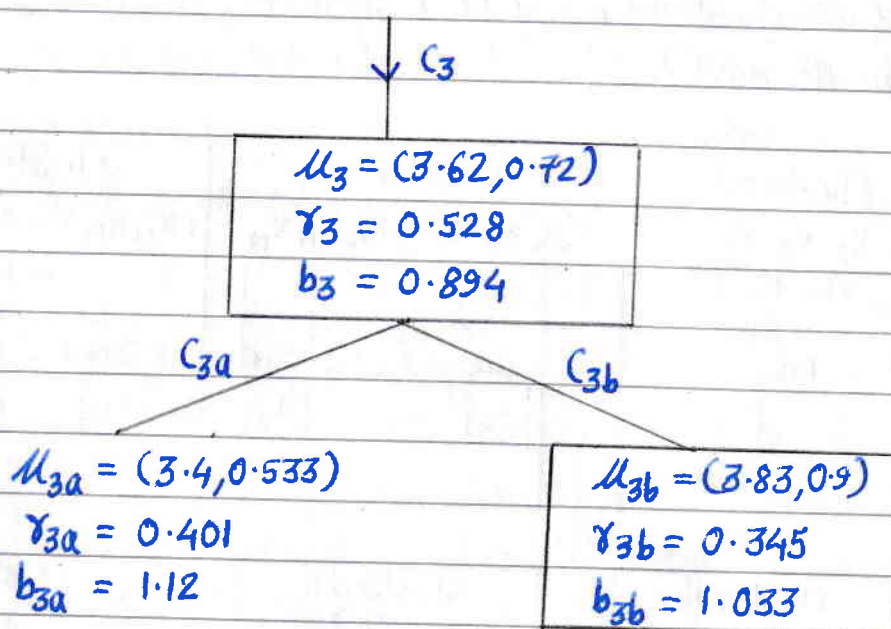 C3
μ3 = (3.62, 0.72)
r3 = 0.528
b3 = 0.894
C3a
C3b
μ3a = (3.4, 0.533)
r3a = 0.401
b3a = 1.12
μ3b = (3.83, 0.9)
r3b = 0.345
b3b = 1.033